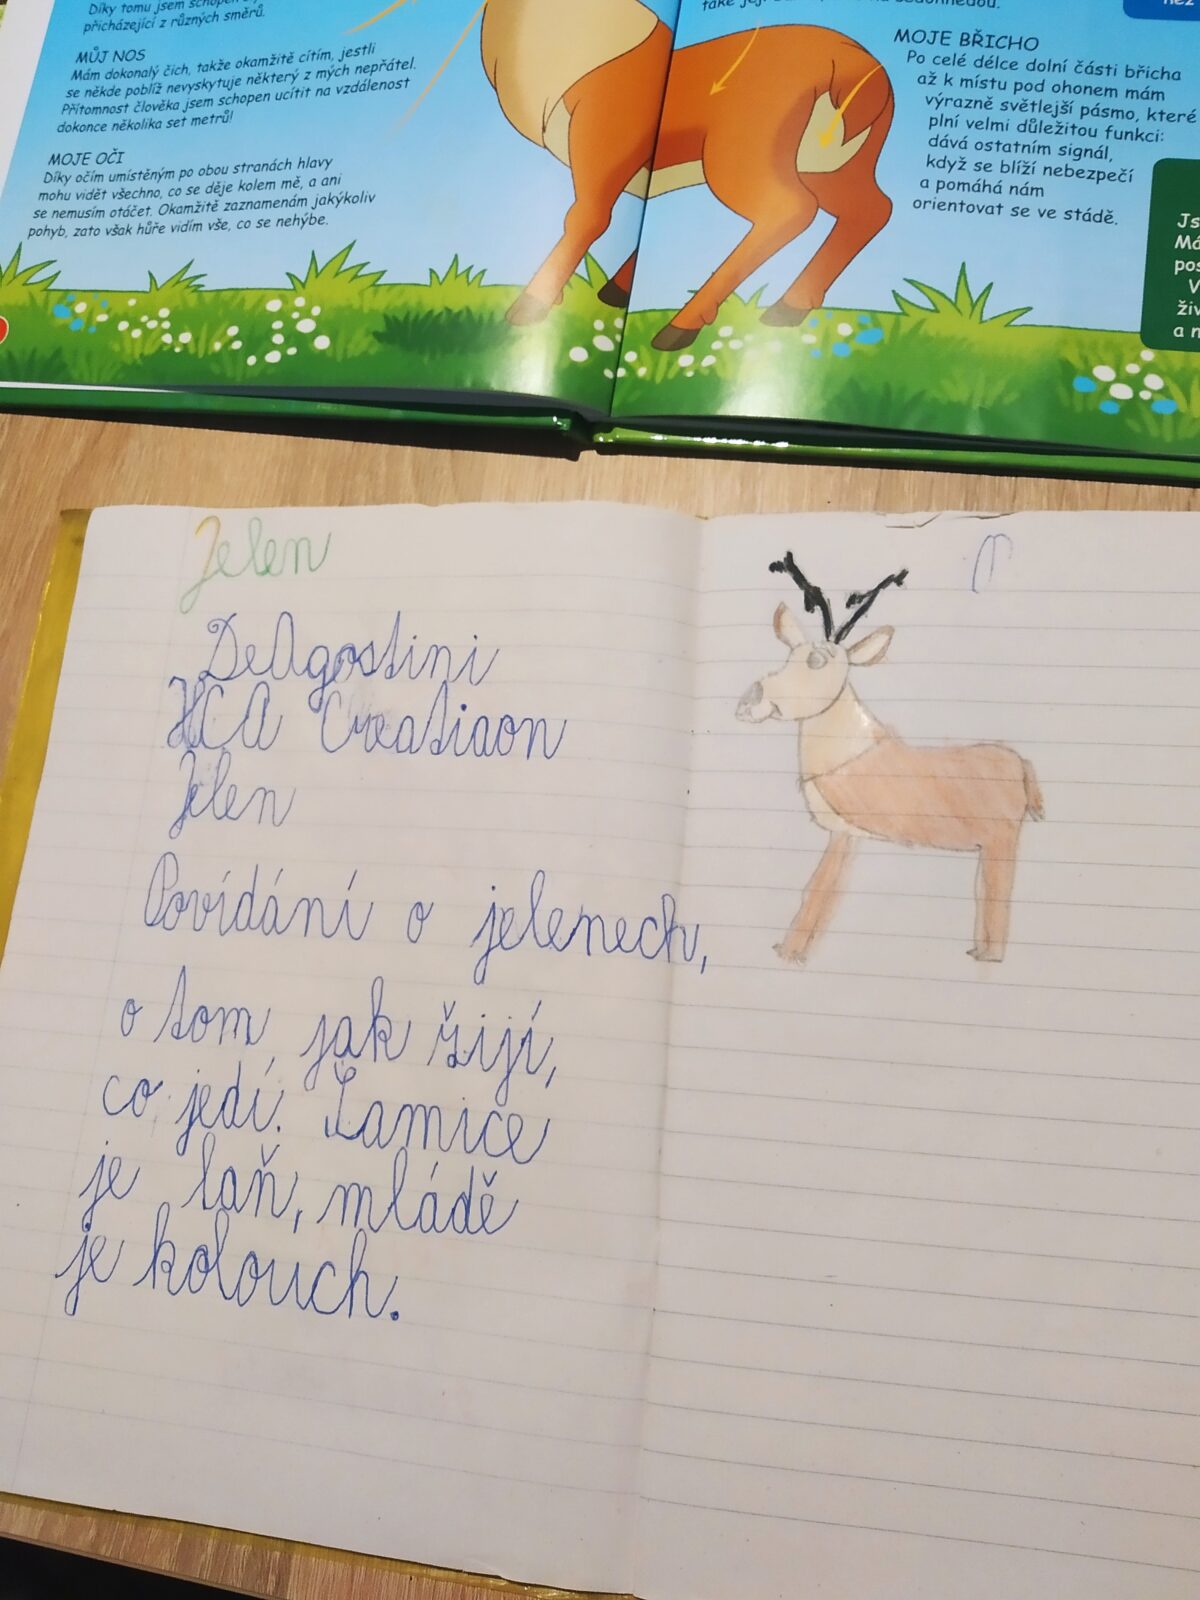 Díky tomu jsem schopen
přicházející z různých směrů.
MŮJ NOS
Mám dokonalý čich, takže okamžitě cítím, jestli
se někde poblíž nevyskytuje některý z mých nepřátel.
Přítomnost člověka jsem schopen ucítit na vzdálenost
dokonce několika set metrů!
MOJE OČI
Díky očím umístěným po obou stranách hlavy
mohu vidět všechno, co se děje kolem mě, a ani
se nemusím otáčet. Okamžitě zaznamenám jakýkoliv
pohyb, zato však hůře vidím vše, co se nehýbe.
než
MOJE BŘICHO
Po celé délce dolní části břicha
až k místu pod ohonem mám
výrazně světlejší pásmo, které
plní velmi důležitou funkci:
dává ostatním signál,
když se blíží nebezpečí
a pomáhá nám
orientovat se ve stádě.
Js
Má
pos
V
živ
a n
Jelen
DeAgostini
HCA Creatiaon
Jelen
Povídání o jelenech,
o tom, jak žijí,
co jedí. Samice
je laň, mládě
je kolouch.